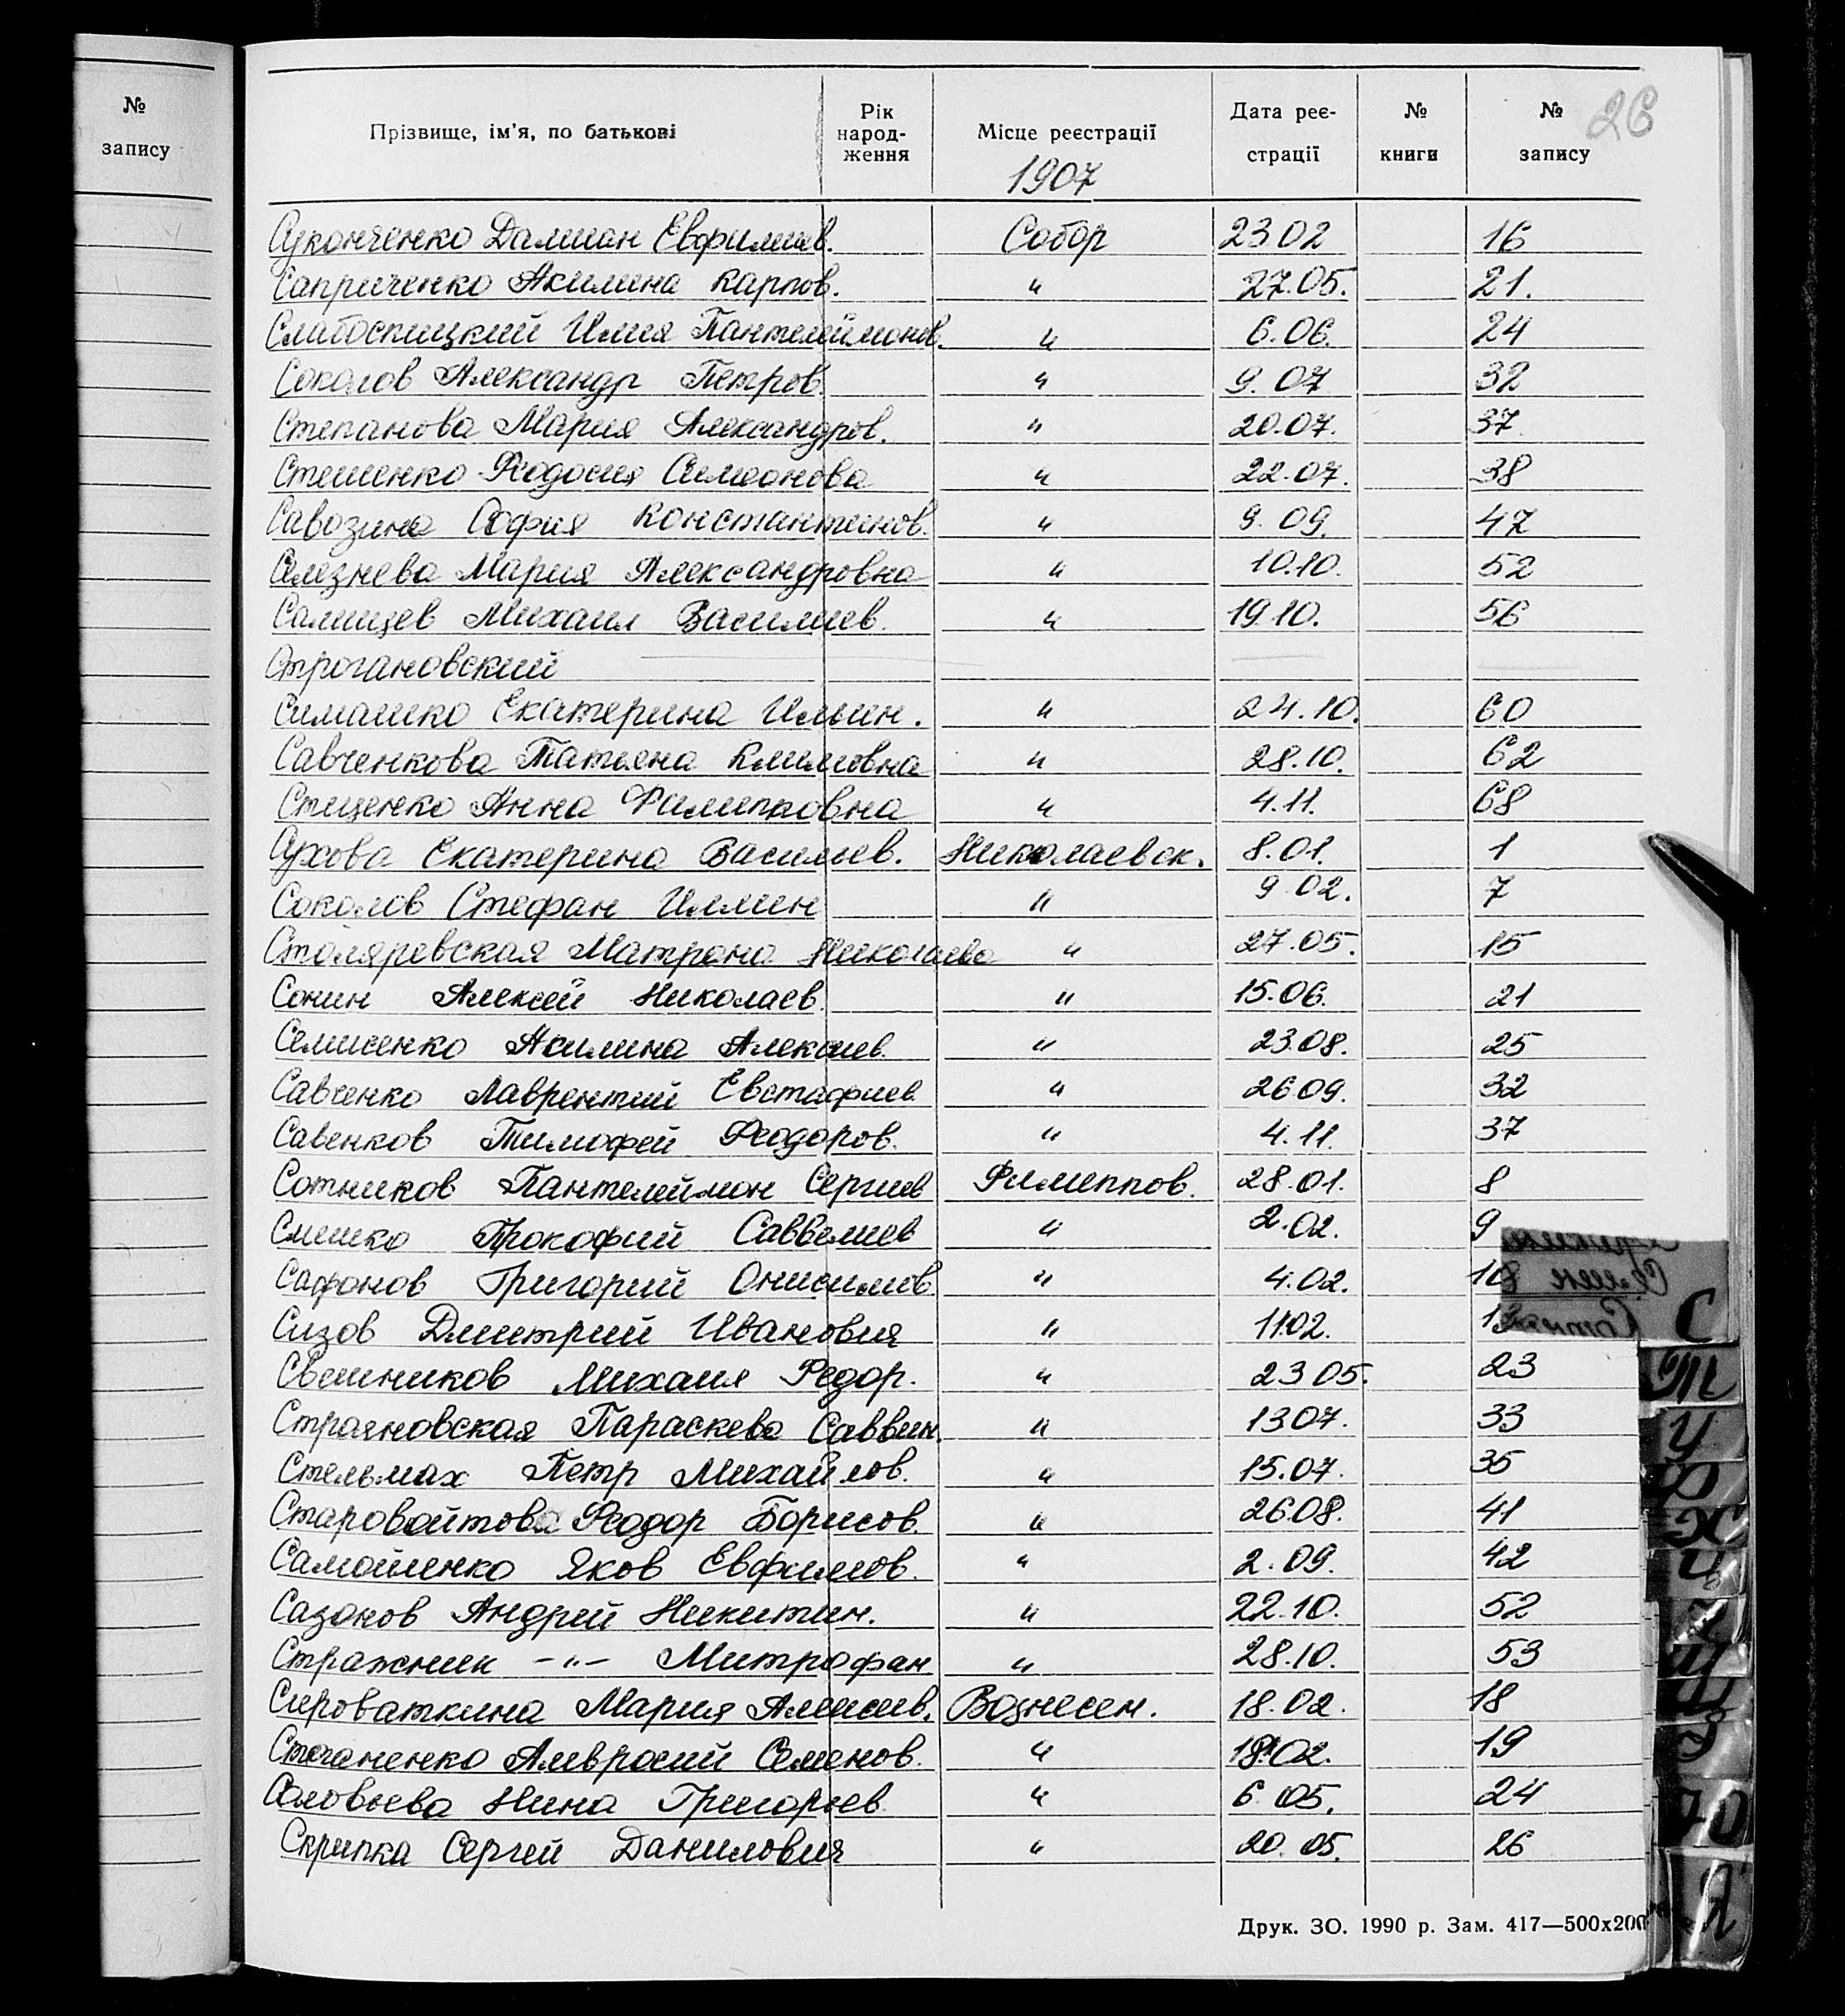 №
запису
26
Прізвище, ім'я, по батькові
Рік народ-ження
Місце реєстрації
1907
Дата реє-страції
№ книги
№ запису
Суконченко Дамиан Евфимиев. Собор 23 02 16
Саприченко Акилина Карпов. " 27.05. 21.
Слабоспицкий Илия Пантелеймонов. " 6.06. 24
Соколов Александр Петров. " 9.07 32
Степанова Мария Александров. " 20.07. 37
Стешенко Феодосия Симеонова " 22.07. 38
Савозина София Константинов. " 9.09. 47
Селезнева Мария Александровна " 10.10. 52
Михаил Василиев. " 19.10. 56
Строгановский
Симашко Екатерина Ильин. " 24.10. 60
Савченкова Татьяна Климовна " 28.10. 62
Стиценко Анна Филипповна " 4.11. 68
Сухова Екатерина Васильев. Николаевск. 8.01. 1
Соколов Стефан Илиин " 9 02. 7
Столяревская Матрона Николаева " 27.05. 15
Сонин Алексей Николаев. " 15.06. 21
Акилина Алексиев. " 23.08. 25
Савченко Лаврентий Евстафиев " 26.09. 32
Савенков Тимофей Феодоров. " 4.11. 37
Сотников Пантелеймон Сергиев Филиппов. 28.01. 8
Смешко Прокофий Саввелиев " 2.02. 9
Сафонов Григорий Онисимов " 4.02. 10
Сизов Дмитрий Иванович " 11.02. 13
Свешников Михаил Федор. " 23 05. 23
Страяновская Параскева Саввин. " 13 07. 33
Стельмах Петр Михайлов. " 15.07. 35
Старовойтова Феодор Борисов. " 26.08. 41
Самойленко Яков Евфимов. " 2.09. 42
Сазонов Андрей Никитин. " 22.10. 52
Стражник -"- Митрофан " 28.10. 53
Сироваткина Мария Алексиев. Вознесен. 18.02. 18
Амвросий Семенов. " 18.02. 19
Соловьева Нина Григорьев. " 6.05. 24
Скрипка Сергей Данилович " 20.05. 26
Друк. ЗО. 1990 р. Зам. 417—500х200
С
Т
У
Ф
Х
Ц
Ш
Э
Ю
Я